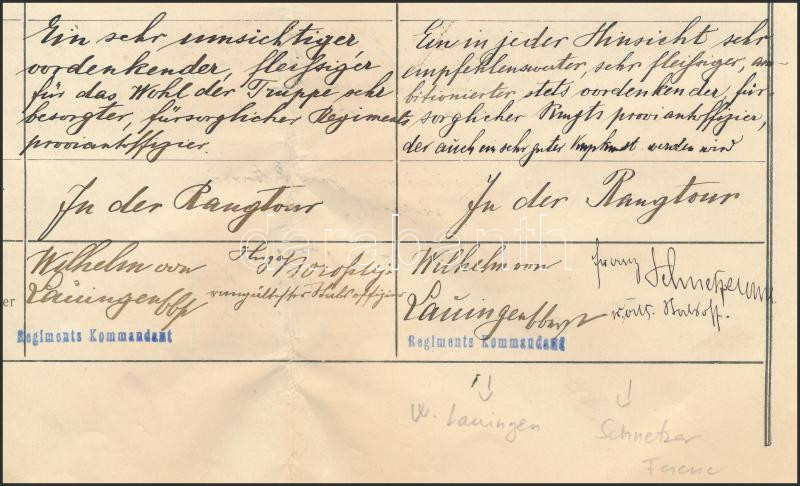 Ein sehr umsichtiger
vordenkender, fleißiger
für das Wohl der Truppe sehr
besorgter, fürsorglicher Regiments
proviantoffizier.
In der Rangtour
Wilhelm von
Lauingen
Hugo
rangältester Stabsoffizier
Regiments Kommandant
Ein in jeder Hinsicht sehr
empfehlenswerter, sehr fleißiger, am-
bitionierter stets vordenkender, für-
sorglicher Rungts proviantoffizier,
der auch ein sehr guter werden wird
In der Rangtour
Wilhelm von
Lauingen
Franz Schnetzer
Regiments Kommandant
er
darabanth
v. Lauingen
Schnetzer
Ferenc